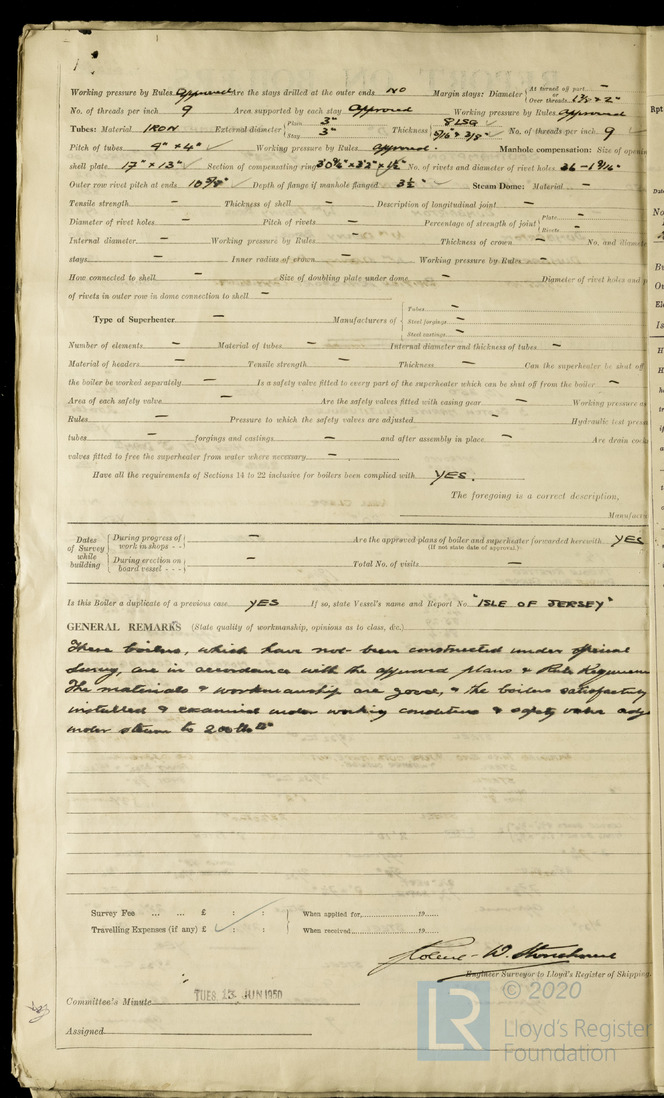 Working pressure by Rules Approved Are the stays drilled at the outer ends NO Margin stays: Diameter { At turned off part - or Over threads 1 3/4" & 2"
No. of threads per inch 9 Area supported by each stay Approved Working pressure by Rules Approved
Tubes: Material IRON External diameter { Plain 3" Stay 3" Thickness { 8 LSG 5/16" & 3/8" No. of threads per inch 9
Pitch of tubes 4" x 4" Working pressure by Rules Approved. Manhole compensation: Size of openin
shell plate 17" x 13" Section of compensating ring No. of rivets and diameter of rivet holes 36 - 1 9/16"
Outer row rivet pitch at ends 10 5/8" Depth of flange if manhole flanged 3 1/2" Steam Dome: Material -
Tensile strength - Thickness of shell - Description of longitudinal joint -
Diameter of rivet holes - Pitch of rivets - Percentage of strength of joint { Plate - Rivets -
Internal diameter - Working pressure by Rules - Thickness of crown - No. and diamete
stays - Inner radius of crown - Working pressure by Rules -
How connected to shell - Size of doubling plate under dome - Diameter of rivet holes and p
of rivets in outer row in dome connection to shell -
Type of Superheater - Manufacturers of { Tubes - Steel forgings - Steel castings -
Number of elements - Material of tubes - Internal diameter and thickness of tubes -
Material of headers - Tensile strength - Thickness - Can the superheater be shut off
the boiler be worked separately - Is a safety valve fitted to every part of the superheater which can be shut off from the boiler -
Area of each safety valve - Are the safety valves fitted with easing gear - Working pressure as
Rules - Pressure to which the safety valves are adjusted - Hydraulic test press
tubes - forgings and castings - and after assembly in place - Are drain cocks
valves fitted to free the superheater from water where necessary -
Have all the requirements of Sections 14 to 22 inclusive for boilers been complied with YES.
The foregoing is a correct description,
Manufactur
Dates of Survey while building { During progress of work in shops - - } - Are the approved plans of boiler and superheater forwarded herewith YES
(If not state date of approval.)
{ During erection on board vessel - - - } - Total No. of visits -
Is this Boiler a duplicate of a previous case YES If so, state Vessel's name and Report No. "ISLE OF JERSEY"
GENERAL REMARKS (State quality of workmanship, opinions as to class, &c.)
These boilers, which have not been constructed under special
Survey, are in accordance with the approved plans & Rule Requireme
The materials & workmanship are good, & the boilers satisfactory
installed & examined under working conditions & safety valve adj
under steam to 200 lbs
Survey Fee ... ... £ : : When applied for, 19
Travelling Expenses (if any) £ : : When received, 19
Engineer Surveyor to Lloyd's Register of Shipping.
Committee's Minute TUES 13 JUN 1950
Assigned
© 2020
LR Lloyd's Register
Foundation